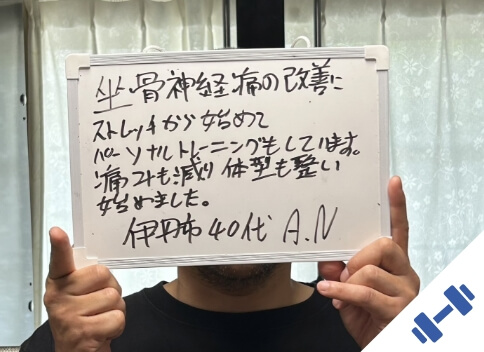 坐骨神経痛の改善に
ストレッチから始めて
パーソナルトレーニングもしています。
痛みも減り体型も整い
始めました。
伊丹市40代 A.N